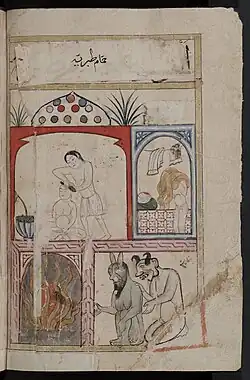 حمام طبريه